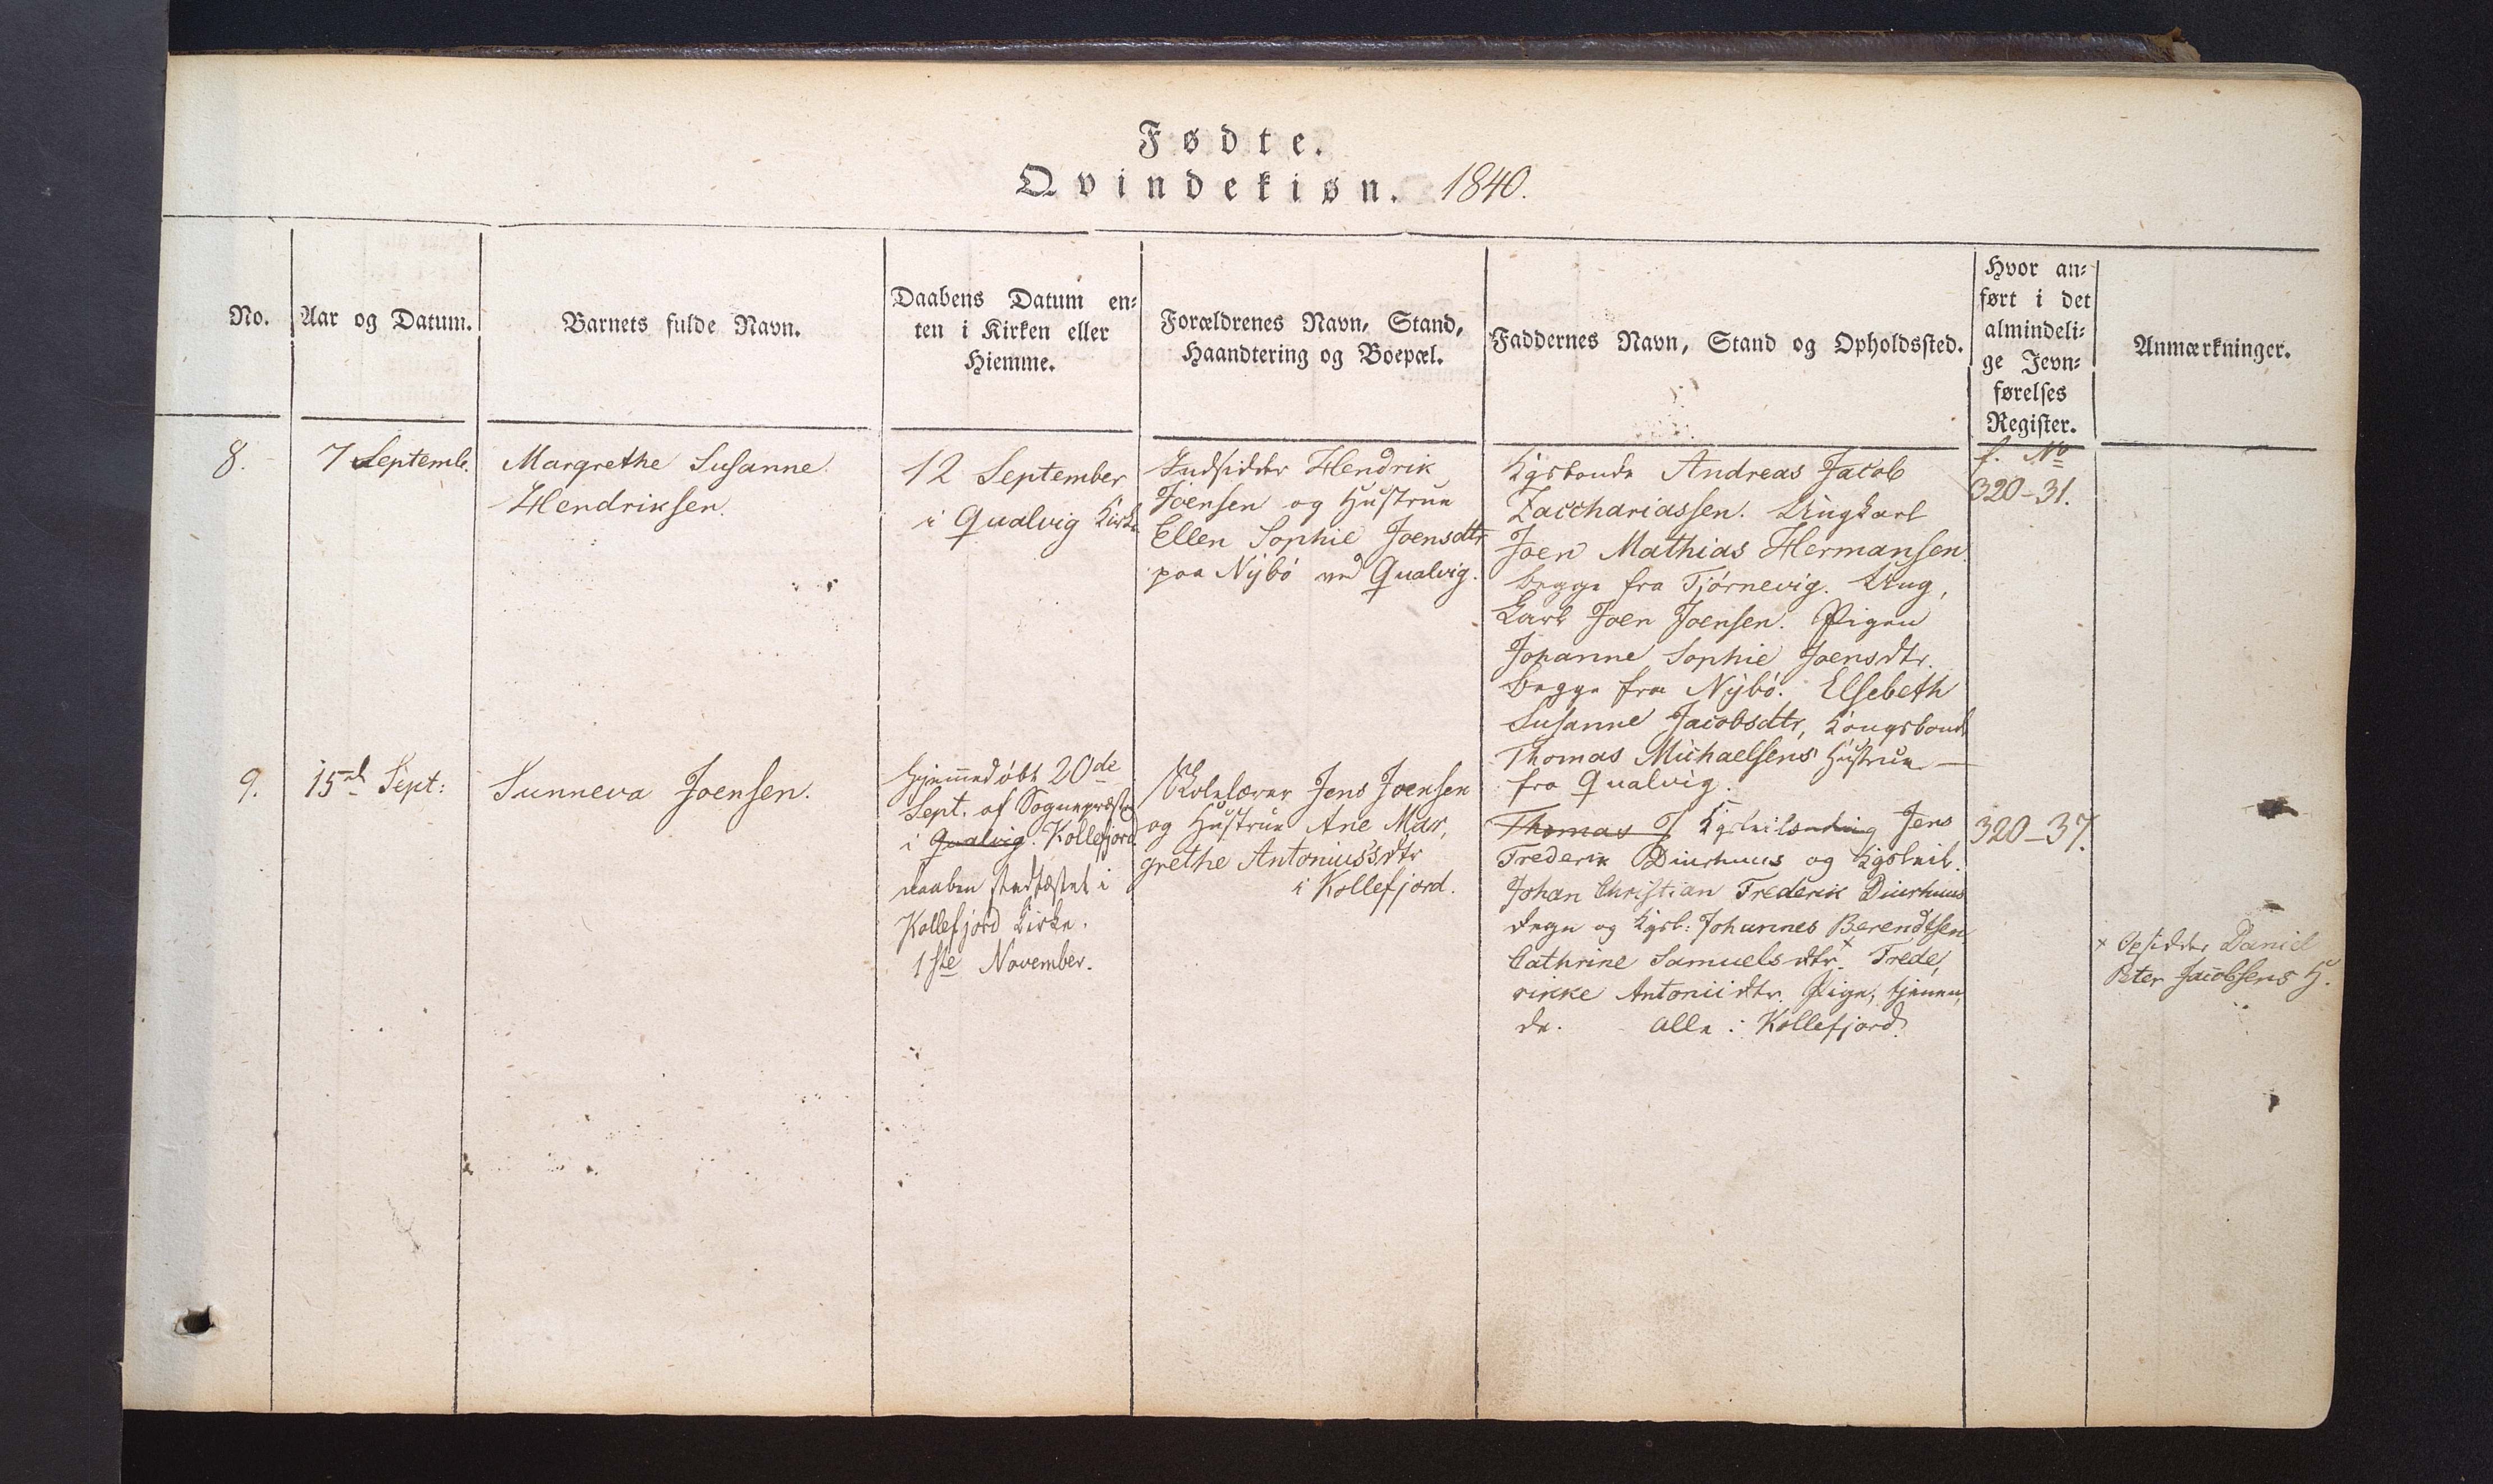 Fødte.
Qvindekiøn. 1840.
No.
Aar og Datum.
Barnets fulde Navn.
Daabens Datum en=
ten i Kirken eller
Hiemme.
Forældrenes Navn, Stand,
Haandtering og Boepæl.
Faddernes Navn, Stand og Opholdssted.
Hvor an=
ført i det
almindeli=
ge Jevn=
førelses
Register.
Anmærkninger.
8.
7 Septemb.
Margrethe Susanne
Hendriksen.
12 September
i Qualvig Kirke
Indsidder Hendrik
Joensen og Hustrue
Ellen Sophie Joensdtr
paa Nÿbö ved Qualvig.
Kgsbonde Andreas Jacob
Zacchariassen. Ungkarl
Joen Mathias Hermansen
begge fra Tjörnevig. Ung,
karl Joen Joensen. Pigen
Johanne Sophie Joensdtr.
begge fra Nÿbö. Elsebeth
Susanne Jacobsdtr, Kongsbond
Thomas Michaelsens Hustrue
fra Qualvig.
f. No
320-31.
9.
15d Sept:
Sunneva Joensen.
Hjemmedöbt 20de
Sept. af Sognepræsten
i Qualvig. Kollefjord
daaben stadfæstet i
Kollefjord Kirke.
1ste November.
Skolelærer Jens Joensen
og Hustrue Ane Mar,
grethe Antoniussdtr
i Kollefjord.
Thomas J Jens
Frederik Diurhuus og
Johan Christian Frederik Diurhuus
degn og Kgsb: Johannes Berendtsen.
Cathrine Samuelsdtr.x Frede,
rikke Antoniidtr. Pige, tjenen,
de. alle i Kollefjord.
320-37.
x Opsidder Daniel
Peter Jacobsens H.